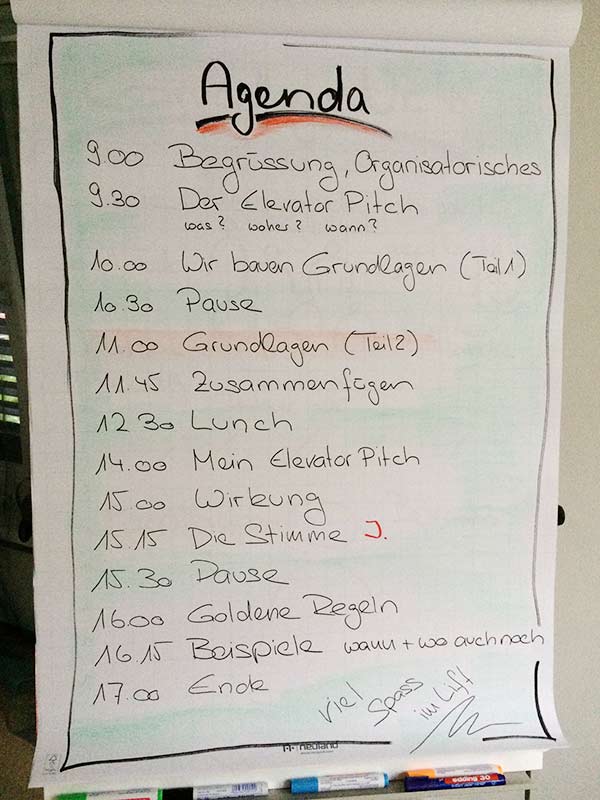 Agenda
9.00 Begrüssung, Organisatorisches
9.30 Der Elevator Pitch
was? woher? wann?
10.00 Wir bauen Grundlagen (Teil 1)
10.30 Pause
11.00 Grundlagen (Teil 2)
11.45 Zusammenfügen
12 30 Lunch
14.00 Mein Elevator Pitch
15.00 Wirkung
15.15 Die Stimme J.
15.30 Pause
16.00 Goldene Regeln
16.15 Beispiele wann + wo auch noch
17.00 Ende
viel Spass im Lift
neuland
edding 30